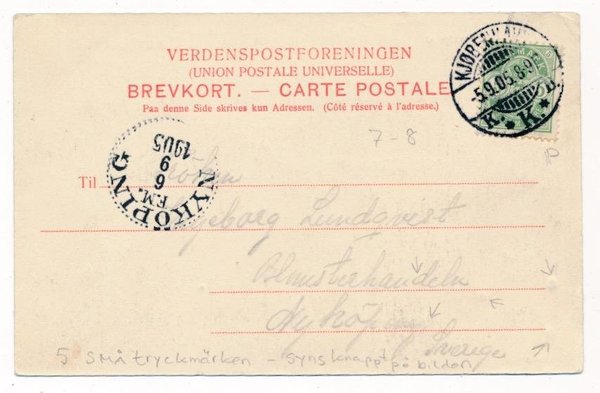 VERDENSPOSTFORENINGEN
(UNION POSTALE UNIVERSELLE)
BREVKORT. — CARTE POSTALE
Paa denne Side skrives kun Adressen. (Côté réservé à l'adresse.)
KJØBENHAVN
5.9.05.8-9
K. ★ K. ★
7-8
NYKÖPING
F.M.
6
9
1905
Til Fröken
Ingeborg Lundqvist
Blomsterhandeln
Nyköping
Sverige
5 SMÅ tryckmärken - syns knappt på bilden